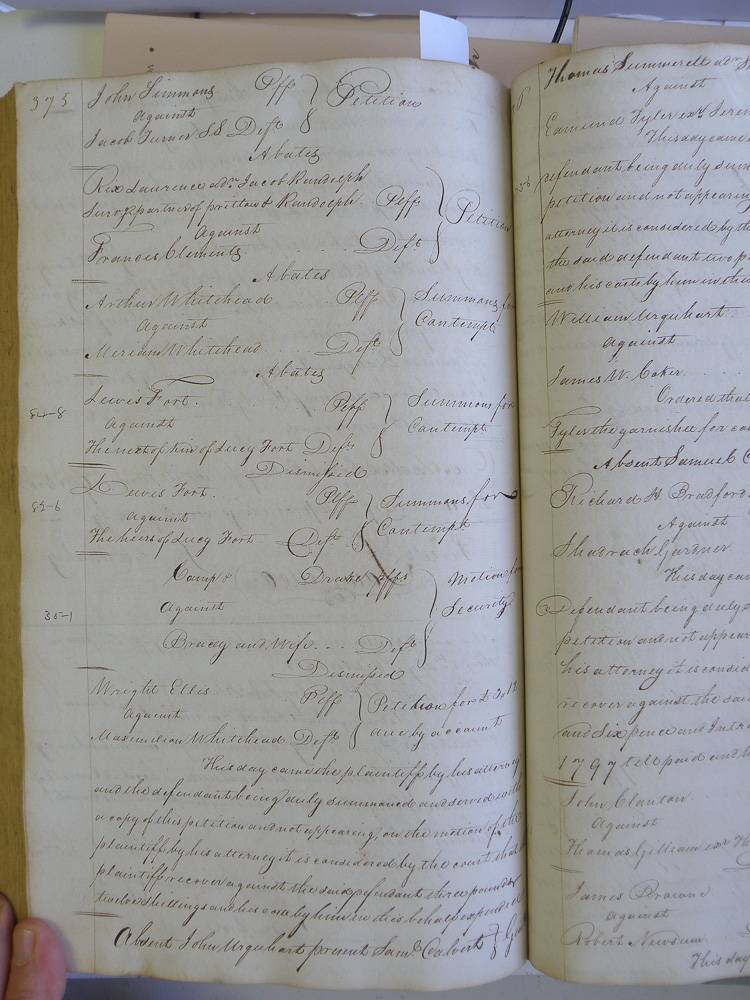 375
John Simmons Plff
Against
Petition
Jacob Turner SS Deft
Abates
Rix Laurence admr Jacob Randolph
Surv'g partner of Britton & Randolph Plff
Against
Petition
Francis Clements Deft
Abates
Arthur Whitehead Plff
Summons for
Against
Contempt
Meriam Whitehead Deft
Abates
Lewis Fort Plff
Summons for
84-8
Against
Contempt
The next of kin of Lucy Fort Defts
Dismissed
Lewis Fort Plff
Summons for
82-6
against
Contempt
The heirs of Lucy Fort Deft
Camp & Drake plffs
Motion for
Against
Security
35-1
Bracey and Wife Deft
Dismissed
Wright Ellis Plff
Petition for £ 3..12
Against
due by account
Maximilian Whitehead Deft
This day came the plaintiff by his attorney
and the defendant being duly summoned and served with
a copy of this petition and not appearing, on the motion of the
plaintiff by his attorney it is considered by the court that
plaintiff recover against the said defendant three pounds
twelve shillings and his costs by him in this behalf expended
Absent John Urquhart present Saml Calvert
Thomas Summerell admr
Against
Edmund Tyler exr
This day came
defendant being duly sum
petition and not appearing
attorney it is considered by the
the said defendant two p
and his costs by him in this
William Urquhart
against
James W. Coker
Ordered that
Tyler the garnishee for
Absent Samuel C
Richard H. Bradford
Against
Shadrach Gardner
This day ca
Defendant being duly s
petition and not appear
his attorney it is consid
recover against the sai
and Six pence and Intr
1797 till paid and h
John Clanton
Against
Thomas Gilliam exr
James Browne
against
Robert Newsum
This day